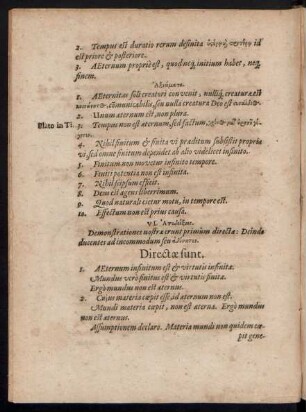 2. Tempus est duratio rerum definita
est priore & posteriore.
3. AEternum propriè est, quod neq; initium habet, neq;
finem.
Ἀξιώματα.
1. AEternitas soli creatori convenit, nulliq; creatura est
communicabilis, seu nulla creatura
2. Unum aternum est, non plura.
Plato in Ti.
3. Tempus non est aternum, sed factum,
4. Nihil finitum & finita vi praeditum subsistit propria
vi, sed omne finitum dependet ab alio videlicet infinito.
5. Finitum non movetur infinito tempore.
6. Finita potentia non est infinita.
7. Nihil seipsum efficit.
8. Deus est agens liberrimum.
9. Quod naturali cietur motu, in tempore est.
10. Effectum non est prius causa.
VI. Ἀποδείξεις.
Demonstrationes nostrae erunt primùm directae: Deinde
ducentes ad incommodum seu
Directæ sunt.
1. AEternum infinitum est & virtutis infinitae.
Mundus verò finitus est & virtutis finitae.
Ergò mundus non est aeternus.
2. Cujus materia coepit esse, id aternum non est.
Mundi materia coepit, non est aterna. Ergò mundus
non est aternus.
Assumptionem declaro. Materia mundi non quidem coe-
pit gene-